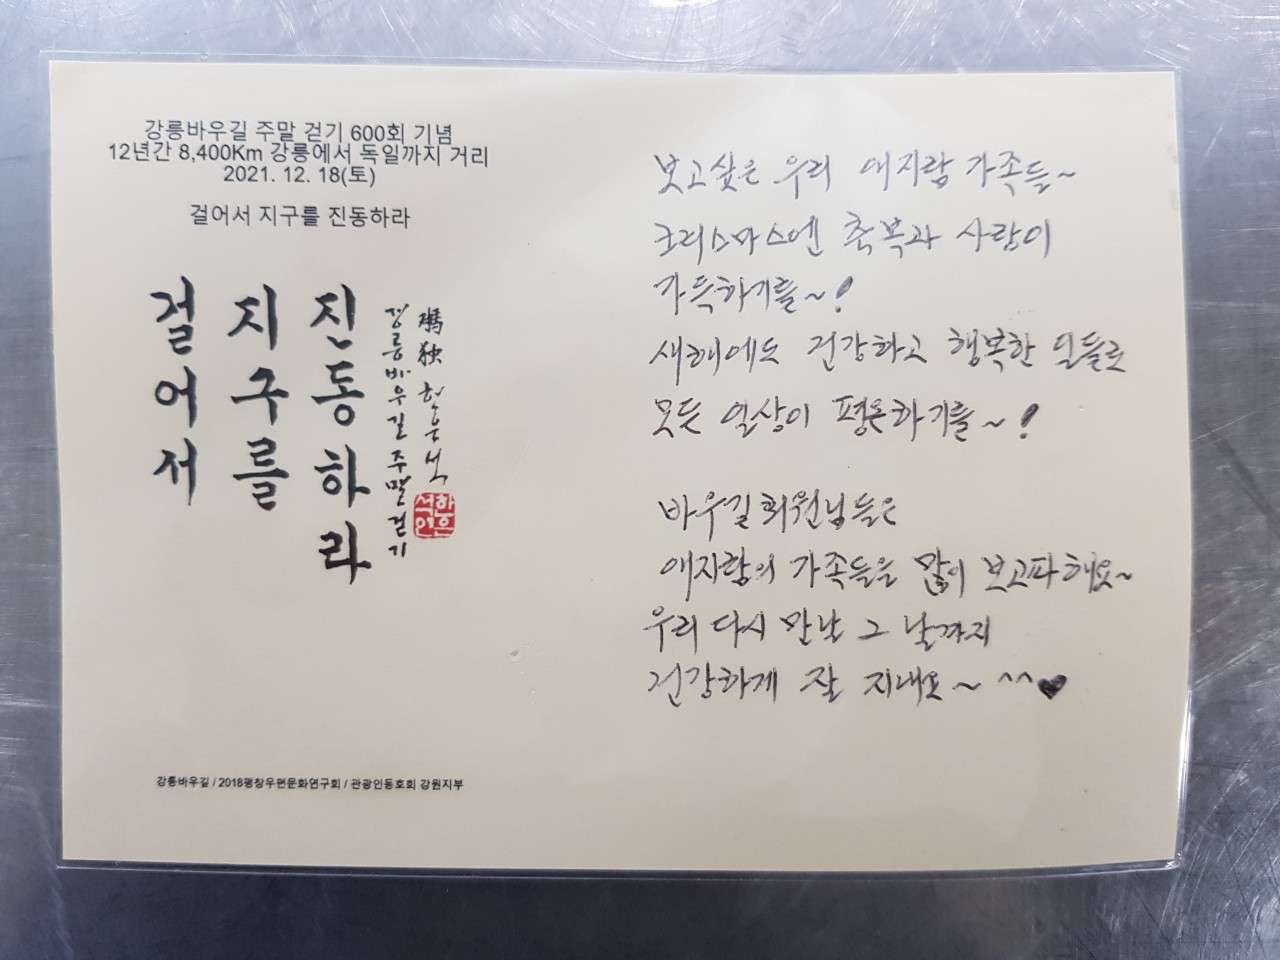 강릉바우길 주말 걷기 600회 기념
12년간 8,400Km 강릉에서 독일까지 거리
2021. 12. 18(토)
걸어서 지구를 진동하라
걸어서
지구를
진동하라
강릉바우길 주말 걷기
한은석
한은석인
강릉바우길 / 2018평창우편문화연구회 / 관광인동호회 강원지부
보고싶은 우리 애지람 가족들~
크리스마스엔 축복과 사랑이
가득하기를~!
새해에도 건강하고 행복한 일들로
모든 일상이 평온하기를~!
바우길 회원님들은
애지람의 가족들을 많이 보고파 해요~
우리 다시 만날 그 날까지
건강하게 잘 지내요~ ^^♥